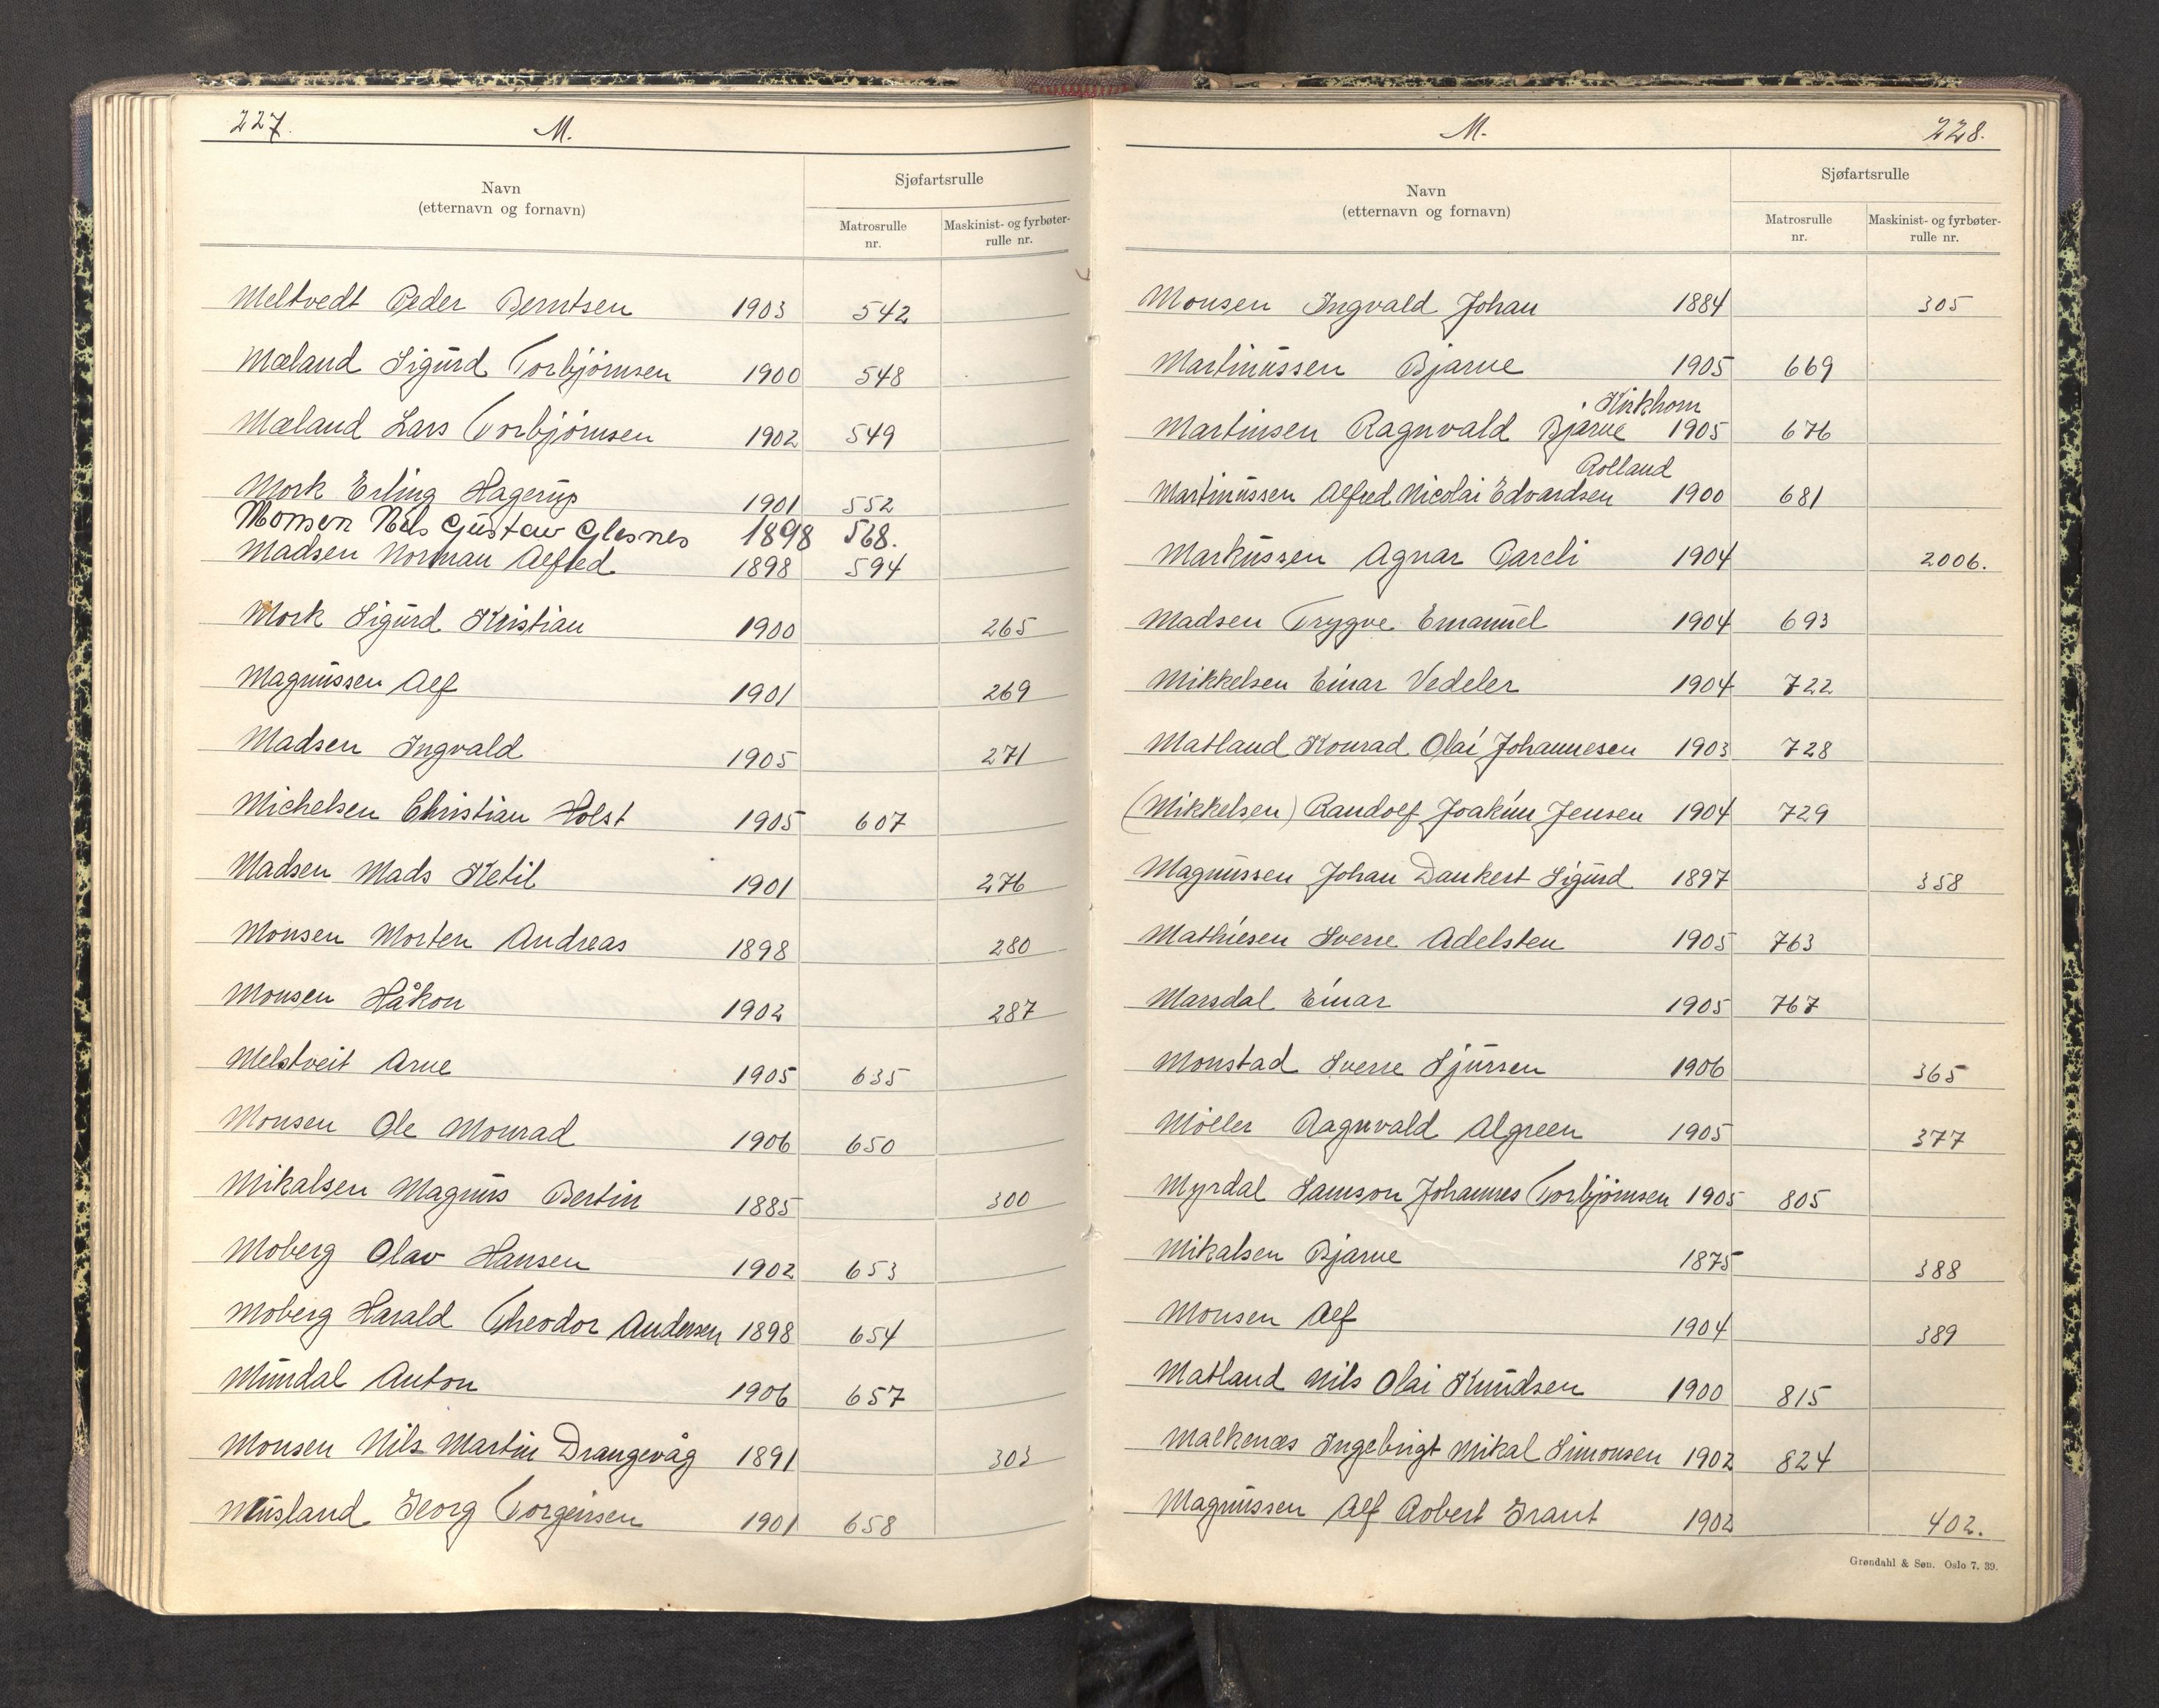 227.
M.
Navn
(etternavn og fornavn)
Sjøfartsrulle
Matrosrulle nr.
Maskinist- og fyrbøter-rulle nr.
Meltvedt Peder Berntsen 1903 542
Mæland Sigurd Torbjørnsen 1900 548
Mæland Lars Torbjørnsen 1902 549
Mork Erling Hagerup 1901 552
Monsen Nils Gustav Glesnes 1898 568.
Madsen Norman Alfred 1898 594
Mork Sigurd Kristian 1900 265
Magnussen Alf 1901 269
Madsen Ingvald 1905 271
Michelsen Christian Holst 1905 607
Madsen Mads Ketil 1901 276
Monsen Morten Andreas 1898 280
Monsen Håkon 1902 287
Melstveit Arne 1905 635
Monsen Ole Monrad 1906 650
Mikalsen Magnus Bertin 1885 300
Moberg Olav Hansen 1902 653
Moberg Harald Theodor Andersen 1898 654
Mundal Anton 1906 657
Monsen Nils Martin Drangevåg 1891 303
Musland Georg Torgeirsen 1901 658
M.
228.
Navn
(etternavn og fornavn)
Sjøfartsrulle
Matrosrulle nr.
Maskinist- og fyrbøter-rulle nr.
Monsen Ingvald Johan 1884 305
Martinussen Bjarne 1905 669
Kirkhorn
Martinsen Ragnvald Bjarne 1905 676
Rolland
Martinussen Alfred Nicolai Edvardsen 1900 681
Markussen Agnar Pareli 1904 2006.
Madsen Trygve Emanuel 1904 693
Mikkelsen Einar Vedeler 1904 722
Matland Konrad Olai Johannesen 1903 728
(Mikkelsen) Randolf Joakim Jensen 1904 729
Magnussen Johan Dankert Sigurd 1897 358
Mathiesen Sverre Adelsten 1905 763
Marsdal Einar 1905 767
Monstad Sverre Sjursen 1906 365
Møller Ragnvald Algreen 1905 377
Myrdal Samson Johannes Torbjørnsen 1905 805
Mikalsen Bjarne 1875 388
Monsen Alf 1904 389
Matland Nils Olai Knudsen 1900 815
Malkenæs Ingebrigt Mikal Simonsen 1902 824
Magnussen Alf Robert Grant 1902 402.
Grøndahl & Søn. Oslo 7. 39.